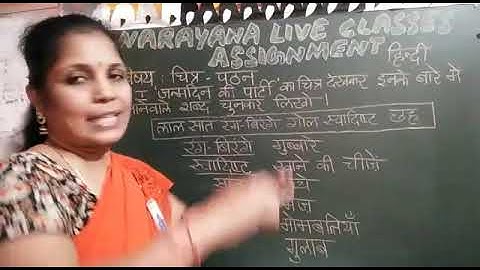 NARAYANA LIVE CLASSES
ASSIGNMENT हिन्दी
विषय : चित्र - पठन
I 'जन्मदिन की पार्टी' का चित्र देखकर इनके बारे में
शब्द चुनकर लिखो ।
लाल सात रंग-बिरंगे गोल स्वादिष्ट छह
रंग-बिरंगे गुब्बारे
स्वादिष्ट खाने की चीजें
मोमबत्तियाँ
गुलाब